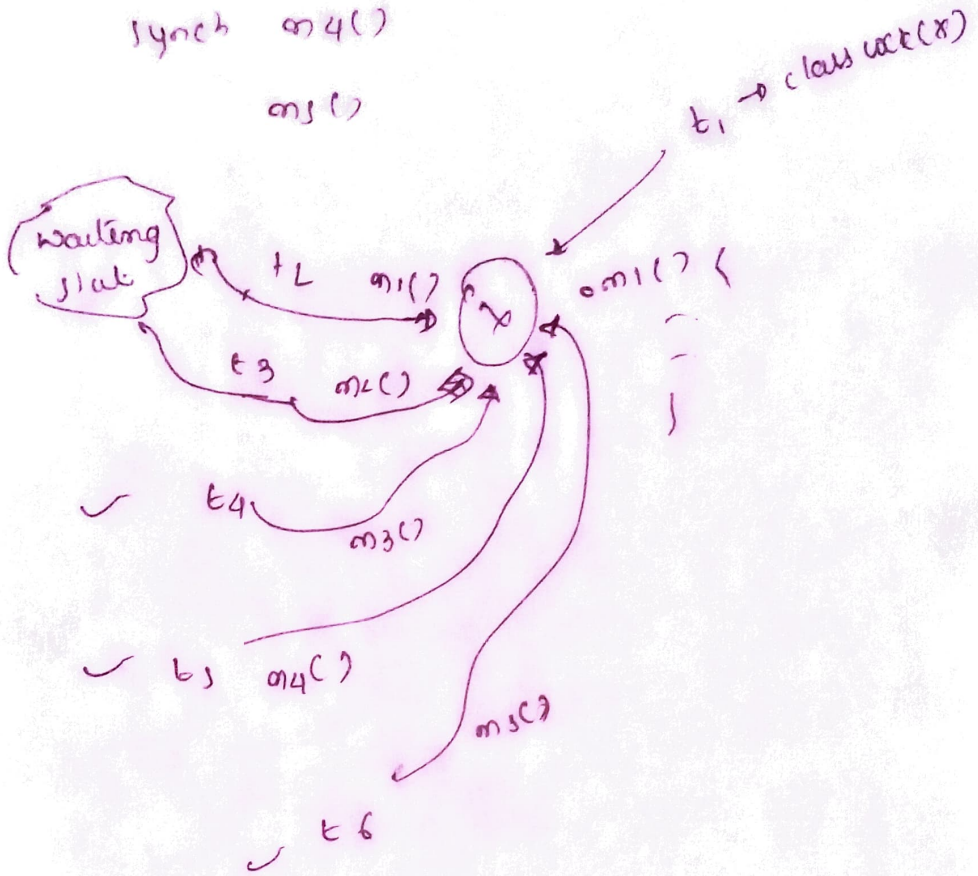 synch m4()
m5()
t1 → class lock(X)
waiting
state
t2 m1()
X
m1() {
}
t3 m2()
t4
m3()
t5 m4()
m5()
t6